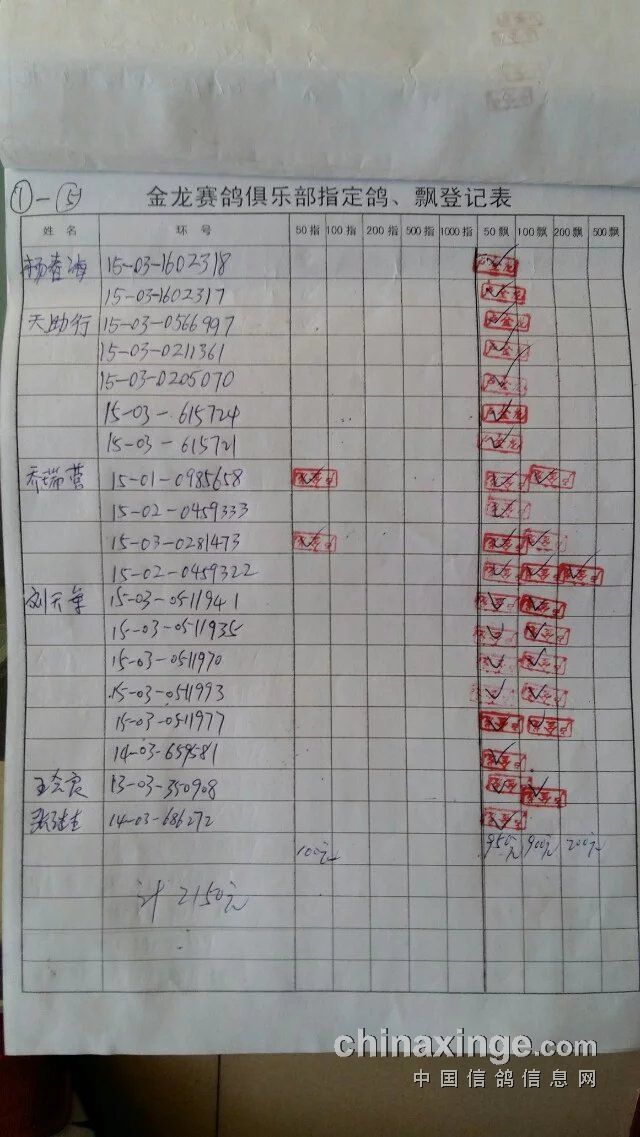 ①-⑤
金龙赛鸽俱乐部指定鸽、飘登记表
姓名 环号 50指 100指 200指 500指 1000指 50飘 100飘 200飘 500飘
杨春海 15-03-1602318
15-03-1602317
天助行 15-03-0566997
15-03-0211361
15-03-0205070
15-03-615724
15-03-615721
乔瑞营 15-01-0985658
15-02-0459333
15-03-0281473
15-02-0459322
刘天 15-03-0511941
15-03-0511935
15-03-0511970
15-03-0511993
15-03-0511977
14-03-659581
王 13-03-350908
张 14-03-686272
100元 950元 900元 200元
计 2150元
chinaxinge.com
中国信鸽信息网